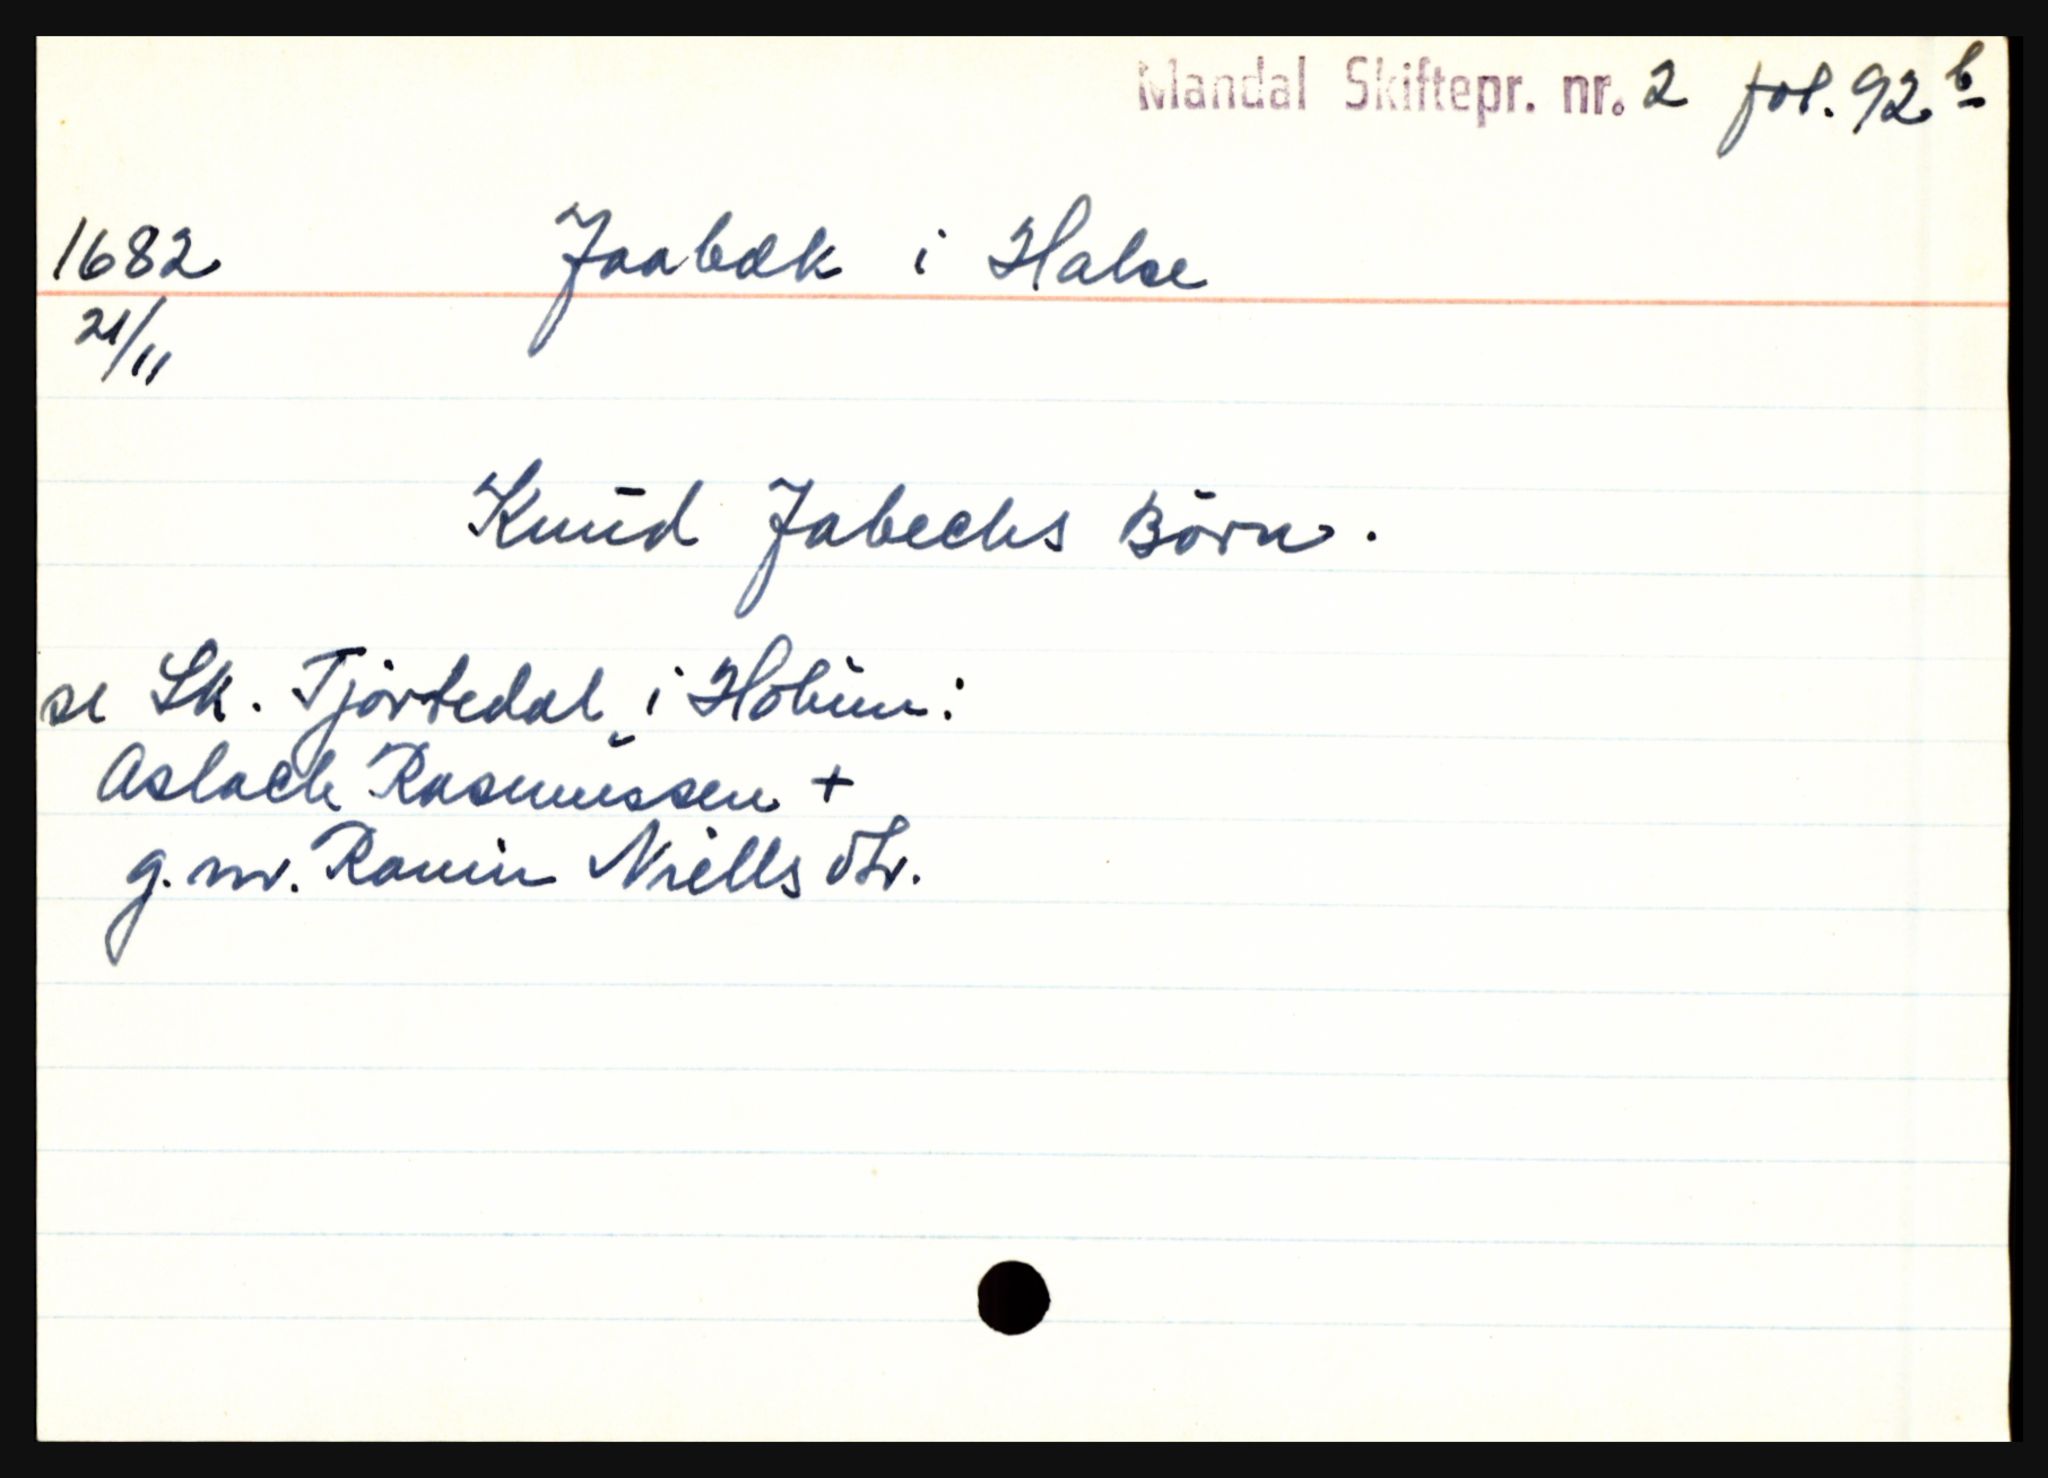 Mandal Skiftepr. nr. 2 fol. 92 b
1682 Jaabæk i Halse
21/11
Knud Jabechs Börn.
se Sk. Tjörtedal i Holum:
Aslach Rasmussen +
g.m. Ranni Niells dtr.